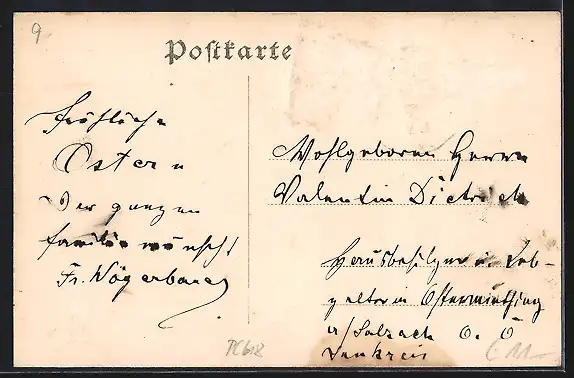 9
Postkarte
Fröhliche
Ostern
Der ganzen
familie wünscht
Fr. Nögerbauer
Wohlgeboren Herrn
Valentin Dietrich
Hausbesitzer u. Leb-
zelter in Ostermiething
a/Salzach O. Ö
Innkreis